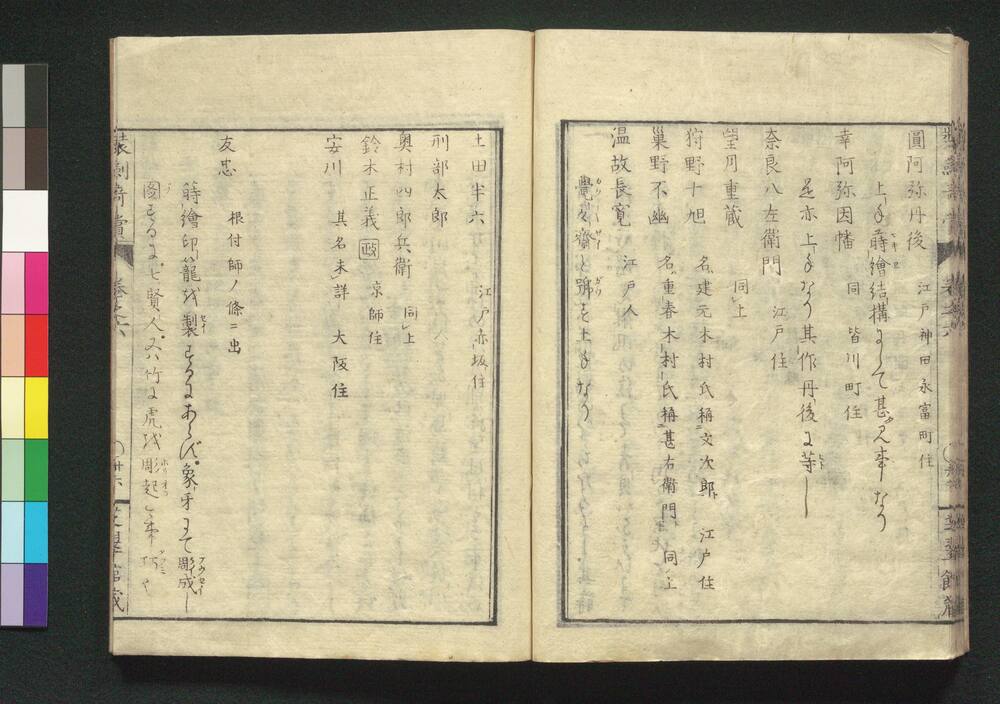 圓阿弥丹後　江戸神田永富町住
上手蒔繪結構にして甚見事なり
幸阿弥因幡　同　皆川町住
是亦上手なり其作丹後に等し
奈良八左衛門　江戸住
望月重蔵　同上
狩野十旭　名建元木村氏稱文次郎　江戸住
巣野不幽　名重春木村氏稱甚右衛門　同上
温故長寛　江戸人
齋と號す上手なり
土田半六　江戸赤坂住
刑部太郎
奥村四郎兵衛　同上
鈴木正義　政　京師住
安川　其名未詳　大阪住
友忠　根付師ノ條ニ出
蒔繪印籠を製するにあらず象牙にて彫成し
圖するに七賢人又ハ竹に虎を彫起
卷之六